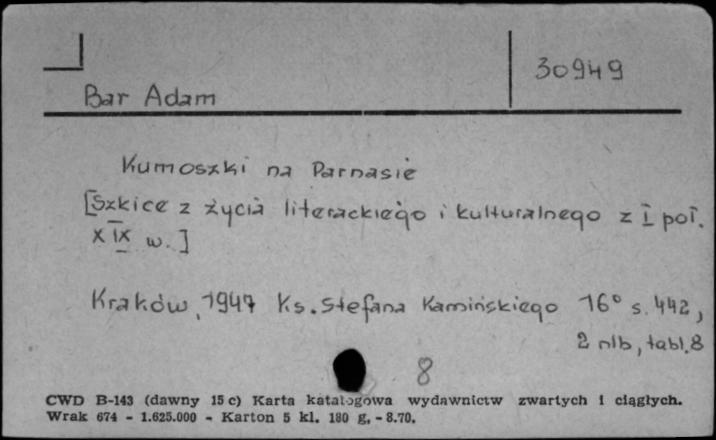 30949
Bar Adam
Kumoszki na Parnasie
[Szkice z życia literackiego i kulturalnego z I poł.
XIX w.]
Kraków, 1947 Ks. Stefana Kamińskiego 16° s. 442,
2 nlb, tabl. 8
8
CWD B-143 (dawny 15 c) Karta katalogowa wydawnictw zwartych i ciągłych.
Wrak 674 - 1.625.000 - Karton 5 kl. 180 g. - 8.70.